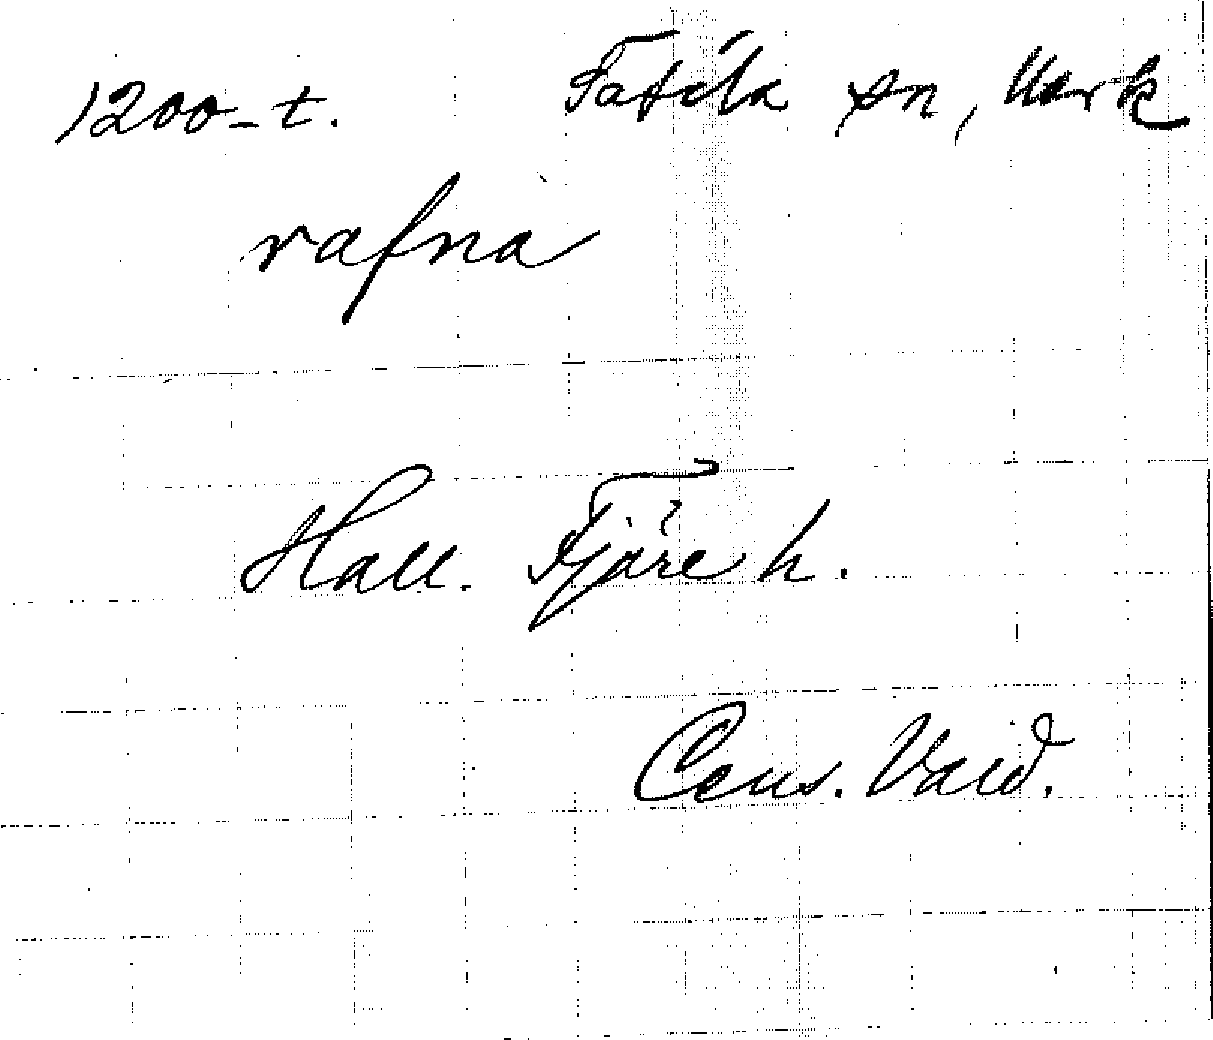 1200-t. Fatila sn, Mark
rafna
Hall. Fjäre h.
Cens. Vald.